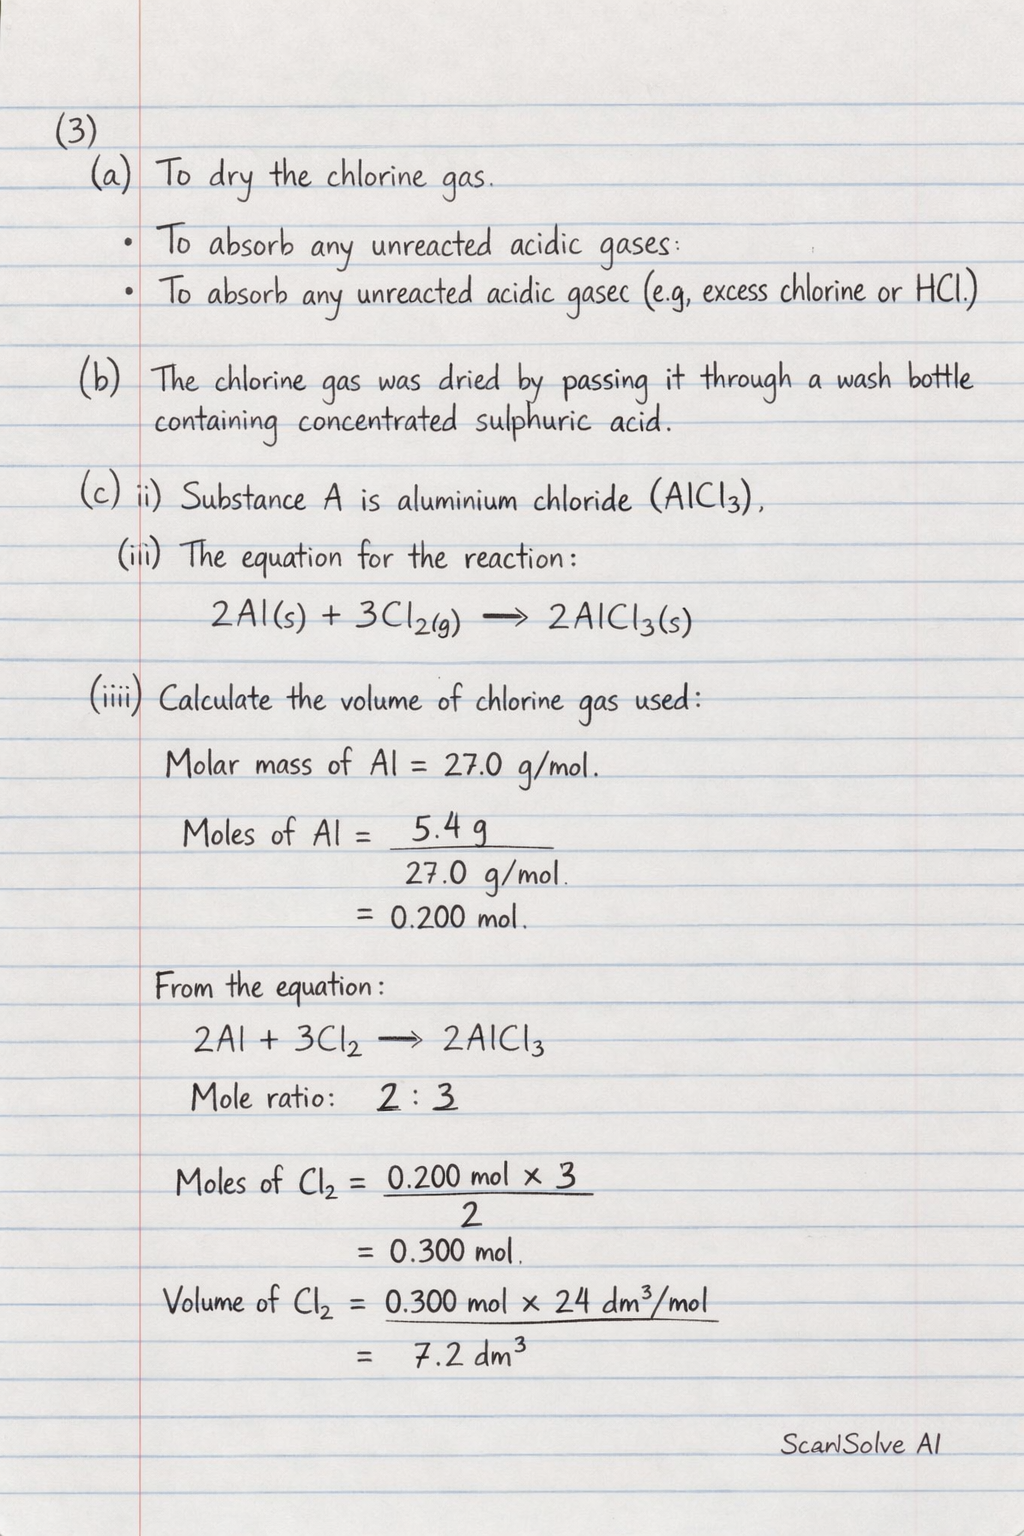 (3)
(a) To dry the chlorine gas.
• To absorb any unreacted acidic gases:
• To absorb any unreacted acidic gasec (e.g, excess chlorine or HCl.)
(b) The chlorine gas was dried by passing it through a wash bottle
containing concentrated sulphuric acid.
(c) ii) Substance A is aluminium chloride (AlCl₃),
(iii) The equation for the reaction:
2Al(s) + 3Cl₂(g) ⟶ 2AlCl₃(s)
(iiii) Calculate the volume of chlorine gas used:
Molar mass of Al = 27.0 g/mol.
Moles of Al = 5.4 g
27.0 g/mol.
= 0.200 mol.
From the equation:
2Al + 3Cl₂ ⟶ 2AlCl₃
Mole ratio: 2 : 3
Moles of Cl₂ = 0.200 mol × 3
2
= 0.300 mol.
Volume of Cl₂ = 0.300 mol × 24 dm³/mol
= 7.2 dm³
ScanSolve AI